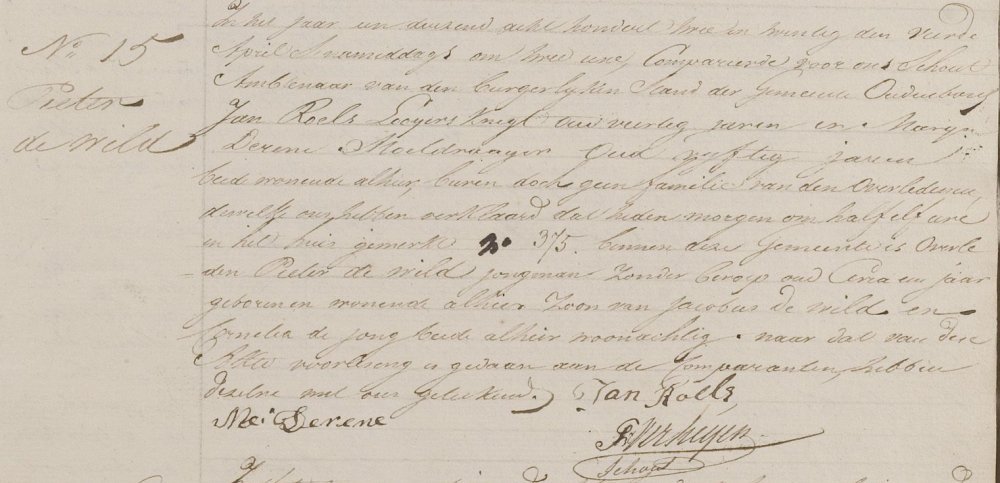 No 15
Pieter
de Wild
In het jaar een duizend acht honderd twee en twintig den vierde
April Snamiddags om twee ure Compareerde voor ons Schout
Ambtenaar van den burgerlyken Stand der Gemeente Oudenbosch
Jan Roels Looyers Knegt oud veertig jaren en Maryn
Derene Meeldraager Oud vyftig jaren
beide wonende alhier, buren doch geen familie van den Overledenen
dewelke ons hebben verklaard dat heden morgen om half elf ure
in het huis gemerkt No 375 binnen deze Gemeente is Overle
den Pieter de Wild jongman Zonder beroep oud Circa een jaar
geboren en wonende alhier Zoon van Jacobus de Wild en
Cornelia de Jong beide alhier woonachtig. naar dat van deze
Akte voorlesing is gedaan aan de Comparanten, hebben
dezelve met ons geteekend.
Jan Rolls
Mei Derene
Verheyen
Schout